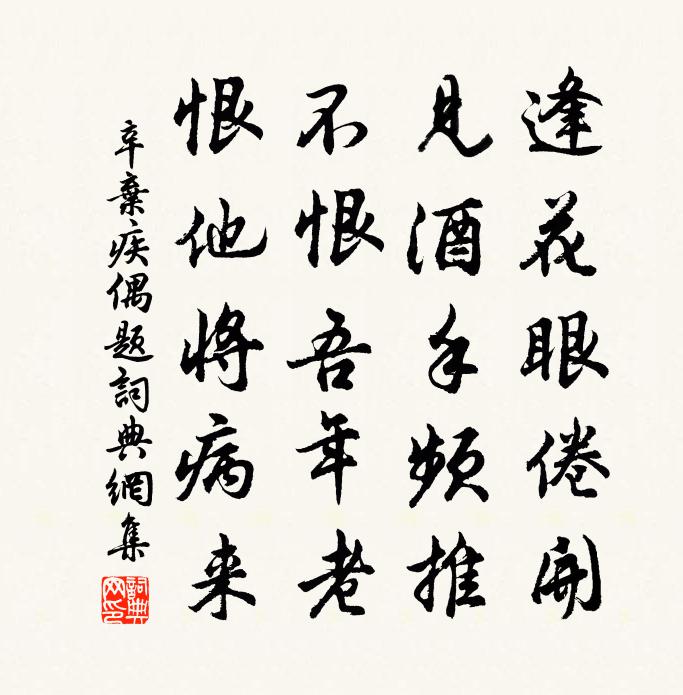 逢花眼倦開
見酒手頻推
不恨吾年老
恨他將病来
辛棄疾偶題詞典網集
詞典網印